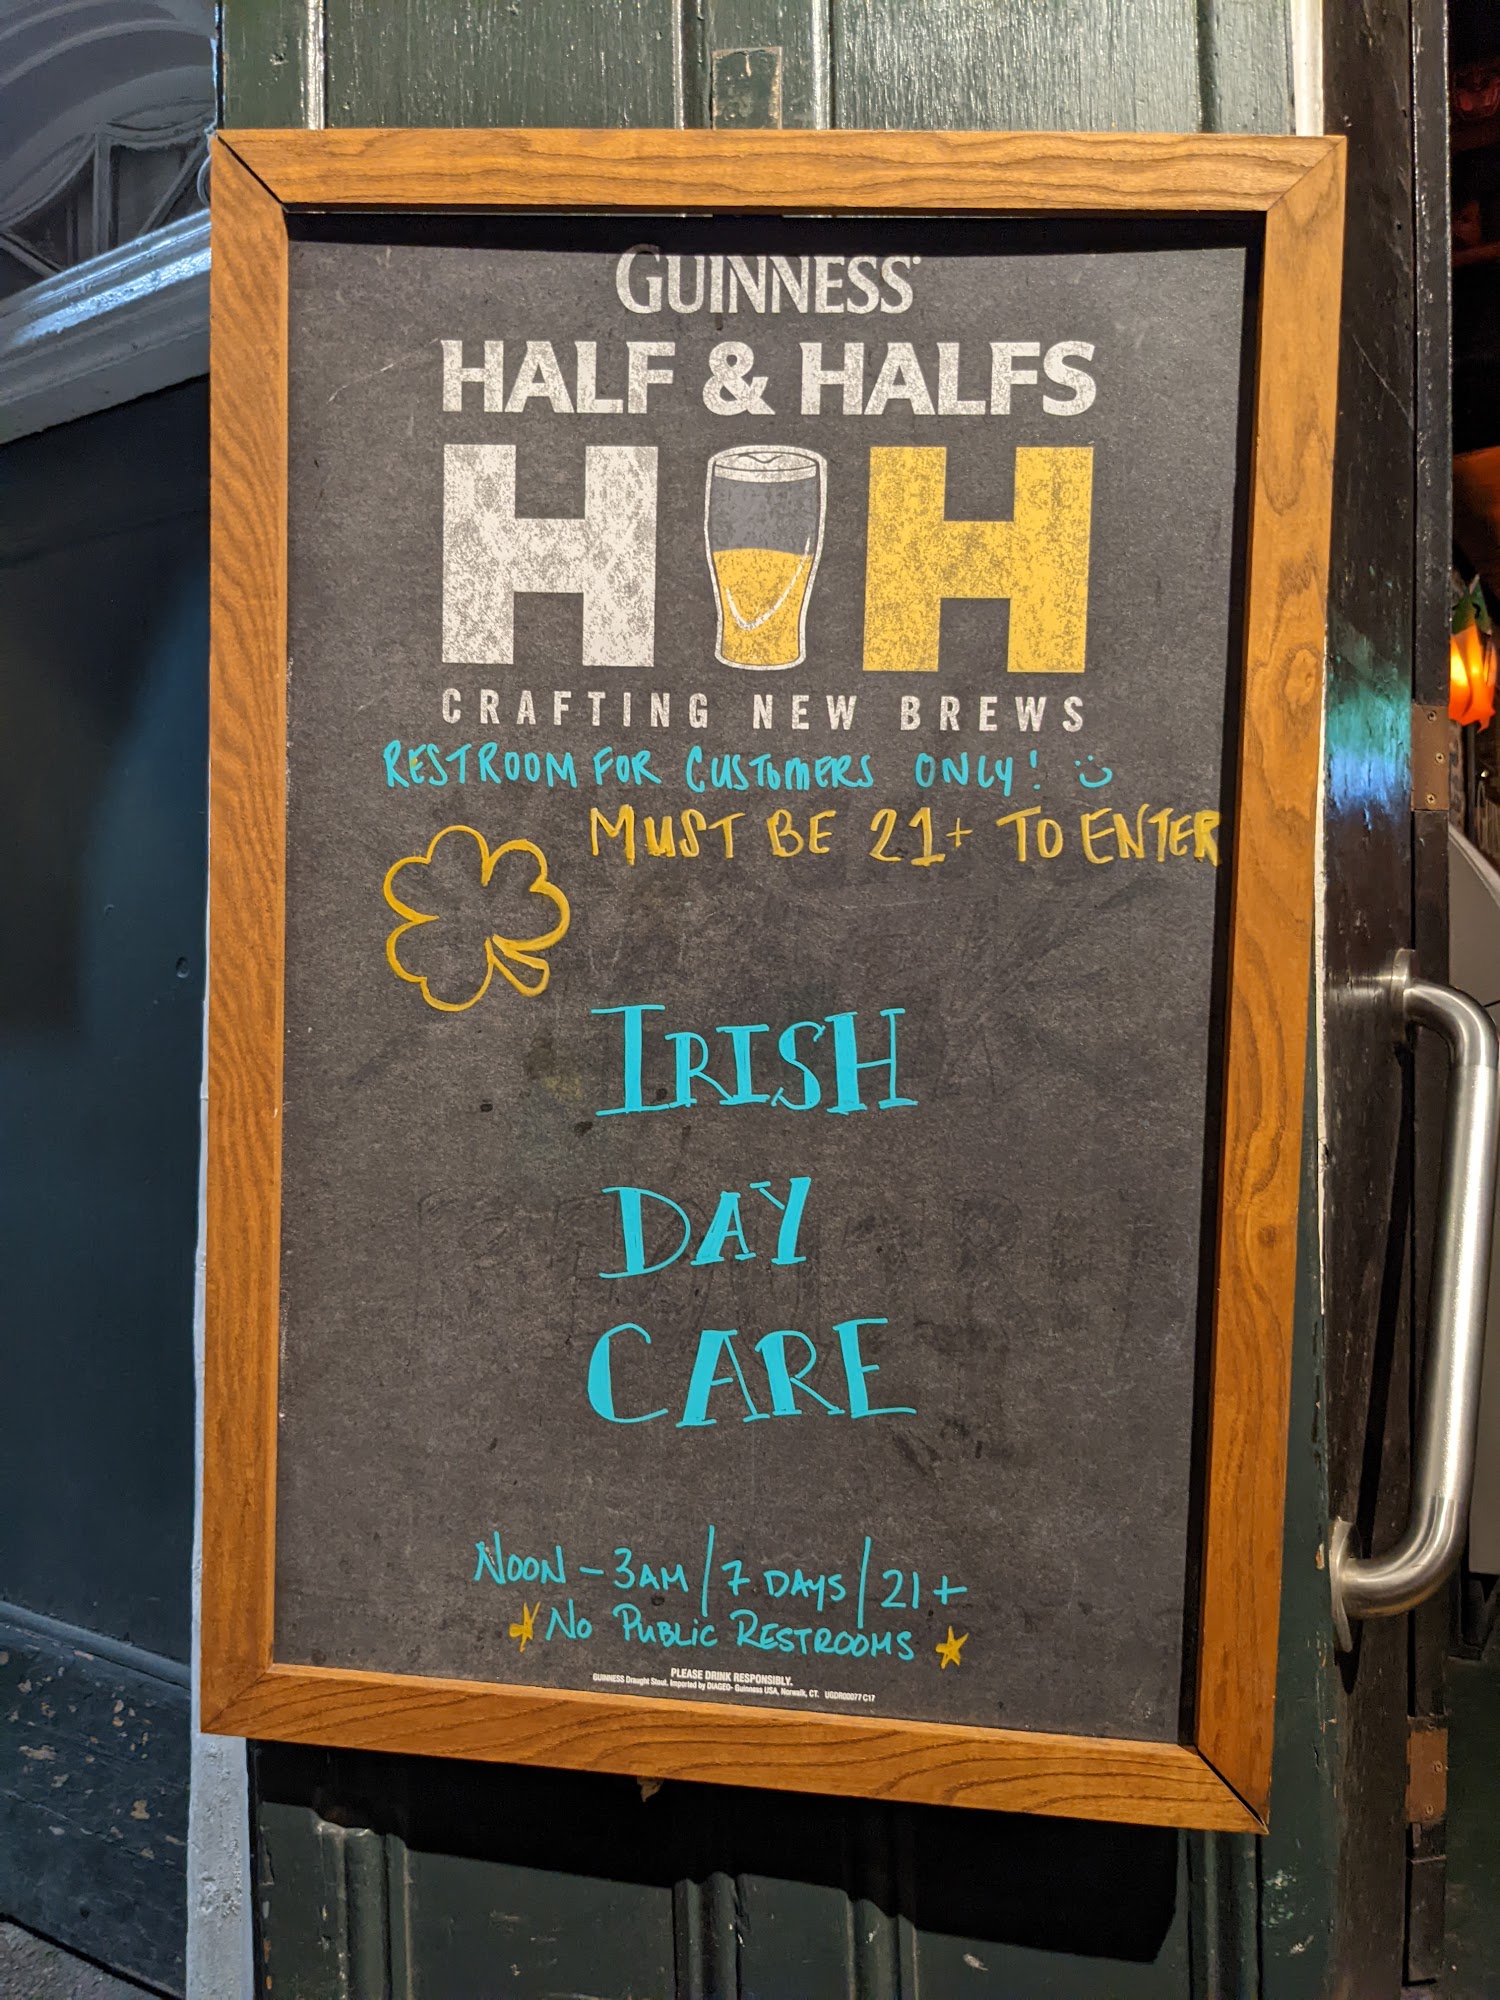 GUINNESS
HALF & HALFS
H H
CRAFTING NEW BREWS
RESTROOM FOR CUSTOMERS ONLY! :)
MUST BE 21+ TO ENTER
IRISH
DAY
CARE
NOON - 3AM / 7 DAYS / 21+
NO PUBLIC RESTROOMS
PLEASE DRINK RESPONSIBLY.
GUINNESS Draught Stout. Imported by DIAGEO- Guinness USA, Norwalk, CT. UGDR00077 C17